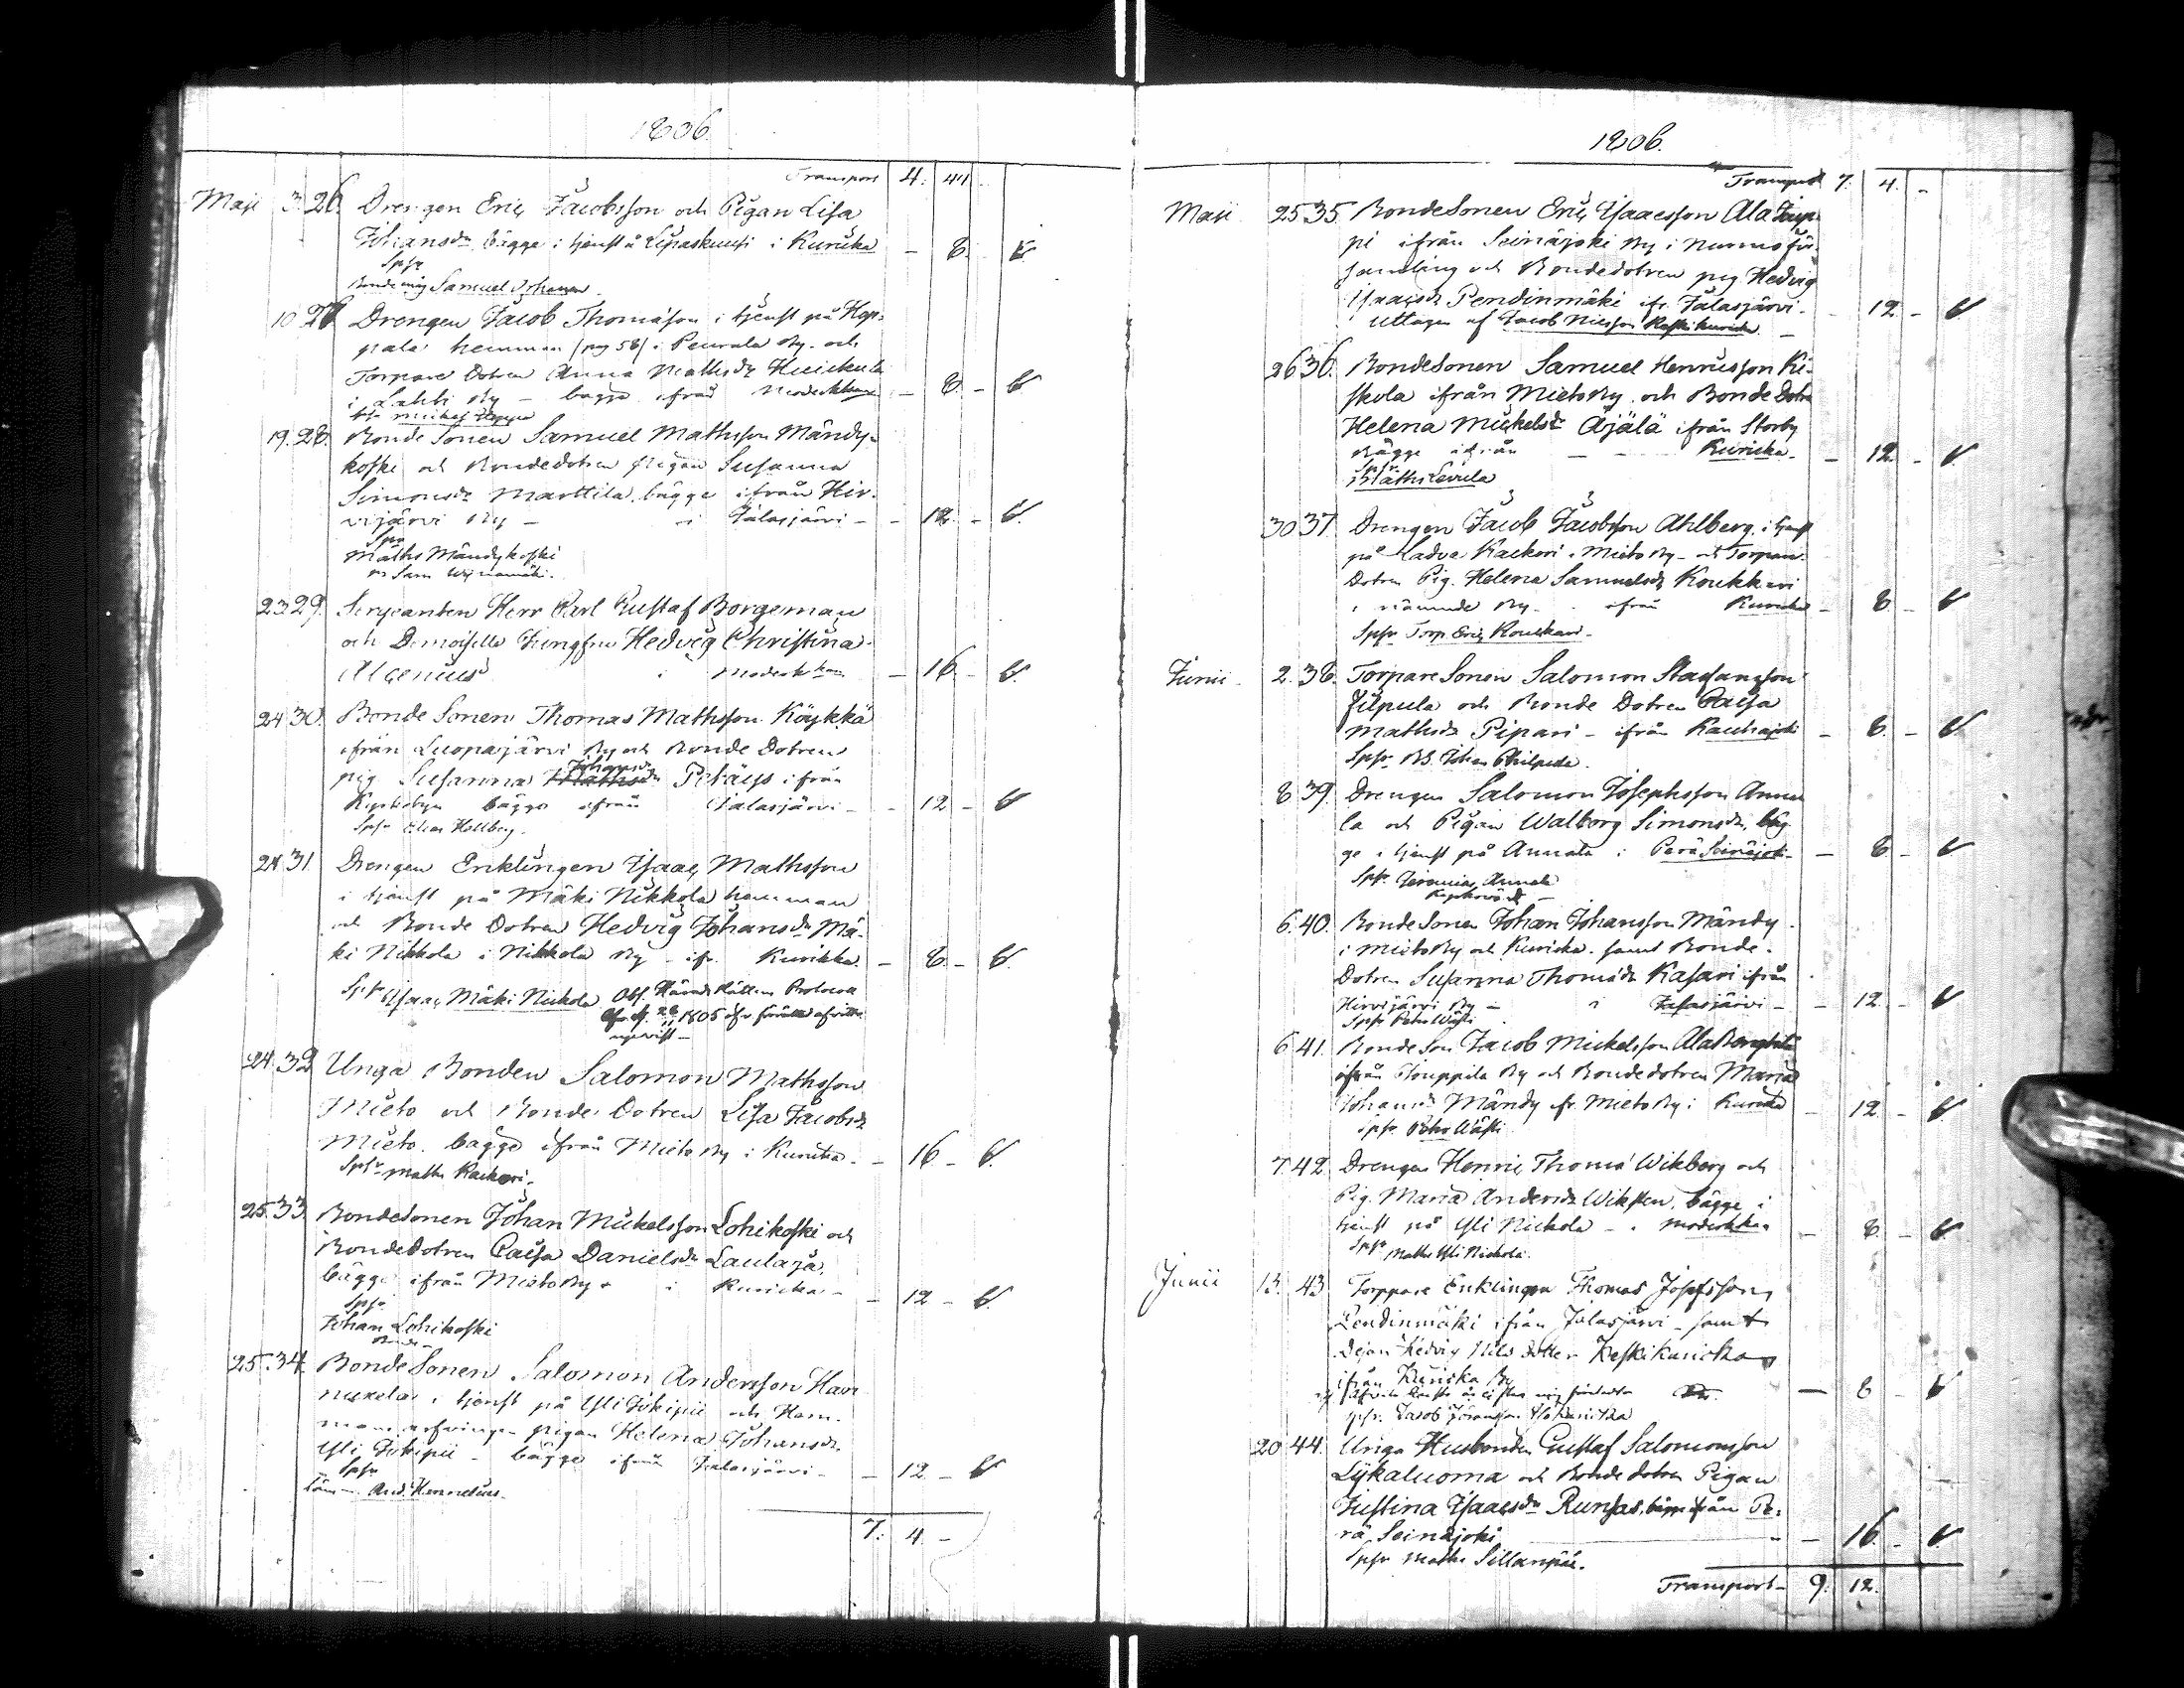 1806.
Transport 4. 44.
Maji 3. 26. Drengen Eric Jacobsson och Pigan Lisa
Johansdr bägge i tjenst å Lipaskuusi i Kuricka - 8. -
Spr
Samuel Johansson
10 27 Drengen Jacob Thomasson i tjenst på Hop-
pala hemman (pag 58) i Peurala By. och
Torpare Dotren Anna Mathsdr
i Lahti By - bägge ifrån Moderkkan - 8. -
19. 28. Bonde Sonen Samuel Mathsson Mändy-
koski och Bondedotren pigan Susanna
Simonsdr Marttila. bägge ifrån Hir-
vijärvi By - i Jalasjärvi - - 12. -
Spr
Maths Mändykoski
23 29. Sergeanten Herr Carl Gustaf Borgeman
och Demoiselle Jungfru Hedvig Christina
Alcenius i Moderkkan - 16. -
24 30. Bonde Sonen Thomas Mathsson Köykkä
ifrån Luopajärvi By och Bonde Dotren
pig Susanna Johansdr Petäys ifrån
Kyrkobyn bägge ifrån Jalasjärvi - - 12 -
Spr Elias Hellberg.
24 31. Drengen Enklingen Isaac Mathsson
i tjenst på Mäki Nikkola hemman
och Bonde Dotren Hedvig Johansdr Mä-
ki Nikkola i Nikkola By - ifr. Kurikka. - 8. -
Spr Isaac Mäki Nickola Obs. Härads Rättens Protocoll
1805
24. 32 Unga Bonden Salomon Mathsson
Mieto och Bonde Dotren Lisa Jacobsdr
Mieto. bägge ifrån Mieto By i Kuricka. - 16 -
Spr Maths
25. 33. BondeSonen Johan Mickelsson Lohikoski och
BondeDotren Caisa Danielsdr Laulaja,
bägge ifrån Mieto By i Kuricka - - 12 -
Spr
Johan Lohikoski
25. 34. Bonde Sonen Salomon Andersson Han
nuxela, i tjenst på Yli Jokipii och Hem-
mansarfwingen pigan Helena Johansdr
Yli Jokipii - bägge ifrån Jalasjärvi - - 12 -
Spr
And. Hennelius.
7: 4 -
1806.
Transport 7. 4. -
Maji 25 35. BondeSonen Eric Isaacsson Ala
pi ifrån Seinäjoki By i Nurmo för-
samling och Bondedotren pig Hedvig
Isaacsdr Pendinmäki ifr. Jalasjärvi. - 12 -
Uttagen af Jacob Nilsson Keskikuricka
26 36. BondeSonen Samuel Henricsson Ki-
skola ifrån Mieto By. och Bonde Dotren
Helena Mickelsdr Äjälä ifrån Storby
Bägge ifrån - - Kuricka. - 12. -
Spr.
Maths Levula
30 37. Drengen Jacob Jacobsson Ahlberg i tjenst
på Ladva i Mieto By - och Torpare
Dotren Pig. Helena Samuelsdr Koukkari
i nämnde By - ifrån Kuricka - 8 -
Spr Torp Eric Kouckari.
Junii 2. 38. Torpare Sonen Salomon Staffansson
Filpula och Bonde Dotren Caisa
Mathsdr Pipari - ifrån Kauhajoki - 8. -
Spr BS. Johan Philpula.
8 39. Drengen Salomon Josephsson Anna
la och Pigan Walborg Simonsdr, bäg
ge i tjenst på Annala i Perä Seinäjoki - 8 -
Spr. Jeremias Annala
6. 40. BondeSonen Johan Johansson Mändy
i Mieto By och Kuricka. samt Bonde-
Dotren Susanna Thomasdr Kasari ifrån
Hirvijärvi By - i Jalasjärvi - - 12. -
Spr Petr Wästi
6 41. BondeSon Jacob Mickelsson
ifrån Touppila By och Bondedotren Maria
Johansdr Mändy ifr. Mieto By i Kuricka - 12 -
Spr. Petr Wästi
7. 42. Drengen Henric Thomas. Wikberg och
Pig. Maria Andersdr Wiksten, bägge i
tjenst på Yli Nickola - i Moderkkan - 8. -
Spr
Maths Yli Nickola
Junii 13. 43 Torppare Enklingen Thomas Josefsson
Pendinmäki ifrån Jalasjärvi - samt
Pejan Hedvig Nils dotter Keskikuricka
ifrån Kuricka By - 8 -
spr. Jacob
20 44. Unga Husbonden Gustaf Salomonsson
Lykaluoma och Bonde dotren Pigan
Justina Isaacsdr Runsas, bägge ifrån Pe-
rä Seinäjoki - 16. -
Spr Maths Sillanpää.
Transport - 9. 12.